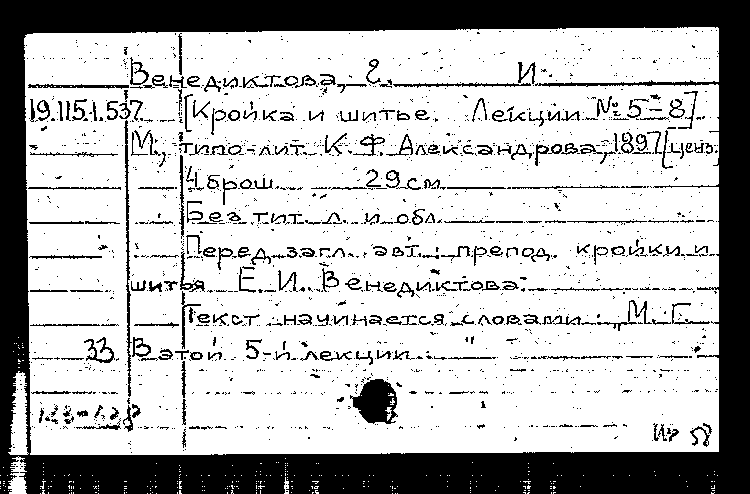 Венедиктова, Е. И.
19.115.1.537 [Кройка и шитье. Лекции №5-8]
М., типо-лит. К. Ф. Александрова, 1897 [ценз.
4 брош. 29 см
Без тит. л. и обл.
Перед загл. авт.: препод. кройки и
шитья Е. И. Венедиктова.
Текст начинается словами: „М. Г.
33 В этой 5-й лекции... "
58